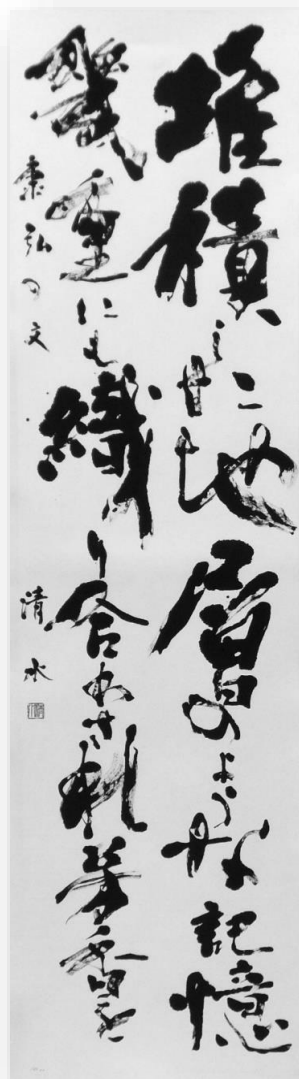 堆積した地層のような記憶
幾重にも織り合わされ
弘の文
清水